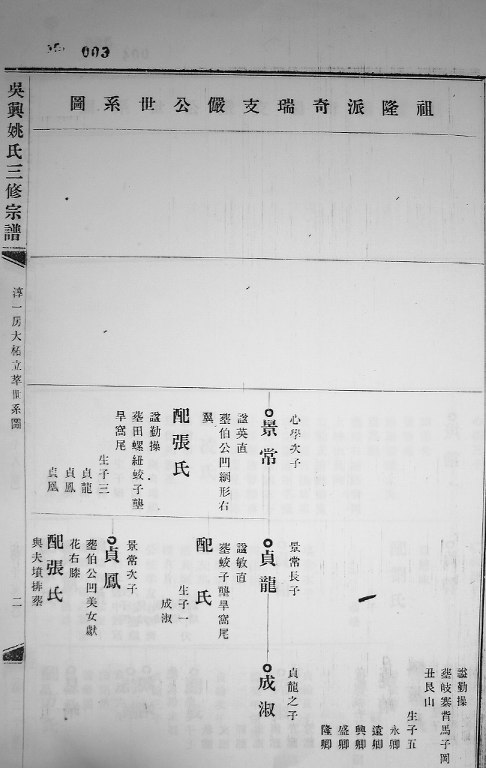 003
吳興姚氏三修宗譜
淳一房大柘立萃世系圖
二
祖隆派奇瑞支儼公世系圖
諡勤操
塟岐寨背馬子岡
丑艮山
生子五
永卿
遠卿
興卿
盛卿
隆卿
心學次子
景常
諡英直
塟伯公凹網形右
翼
配張氏
諡勤操
塟田螺紐蛟子壟
旱窩尾
生子三
貞龍
貞鳳
貞凰
景常長子
貞龍
諡敏直
塟蛟子壟旱窩尾
配 氏
生子一
成淑
景常次子
貞鳳
塟伯公凹美女獻
花右膝
配張氏
與夫墳排塟
貞龍之子
成淑